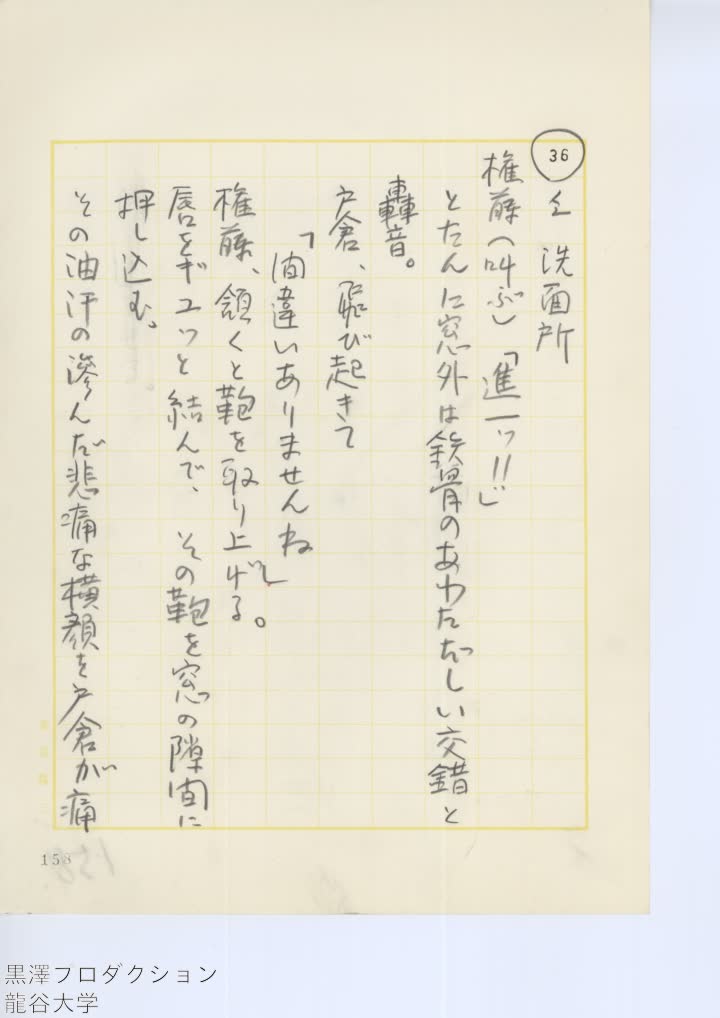 36
仝 洗面所
権藤(叫ぶ)「進一ッ!!」
とたんに窓外は鉄骨のあわただしい交錯と
轟音。
戸倉、飛び起きて
「間違いありませんね」
権藤、頷くと鞄を取り上げる。
唇をギュッと結んで、その鞄を窓の隙間に
押し込む。
その油汗の滲んだ悲痛な横顔を戸倉が痛
158
黒澤プロダクション
龍谷大学